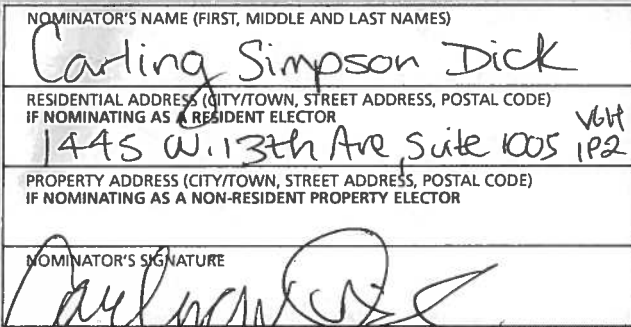 NOMINATOR'S NAME (FIRST, MIDDLE AND LAST NAMES)
Carling Simpson Dick
RESIDENTIAL ADDRESS (CITY/TOWN, STREET ADDRESS, POSTAL CODE)
IF NOMINATING AS A RESIDENT ELECTOR
1445 W. 13th Ave, Suite 1005 V6H 1P2
PROPERTY ADDRESS (CITY/TOWN, STREET ADDRESS, POSTAL CODE)
IF NOMINATING AS A NON-RESIDENT PROPERTY ELECTOR
NOMINATOR'S SIGNATURE